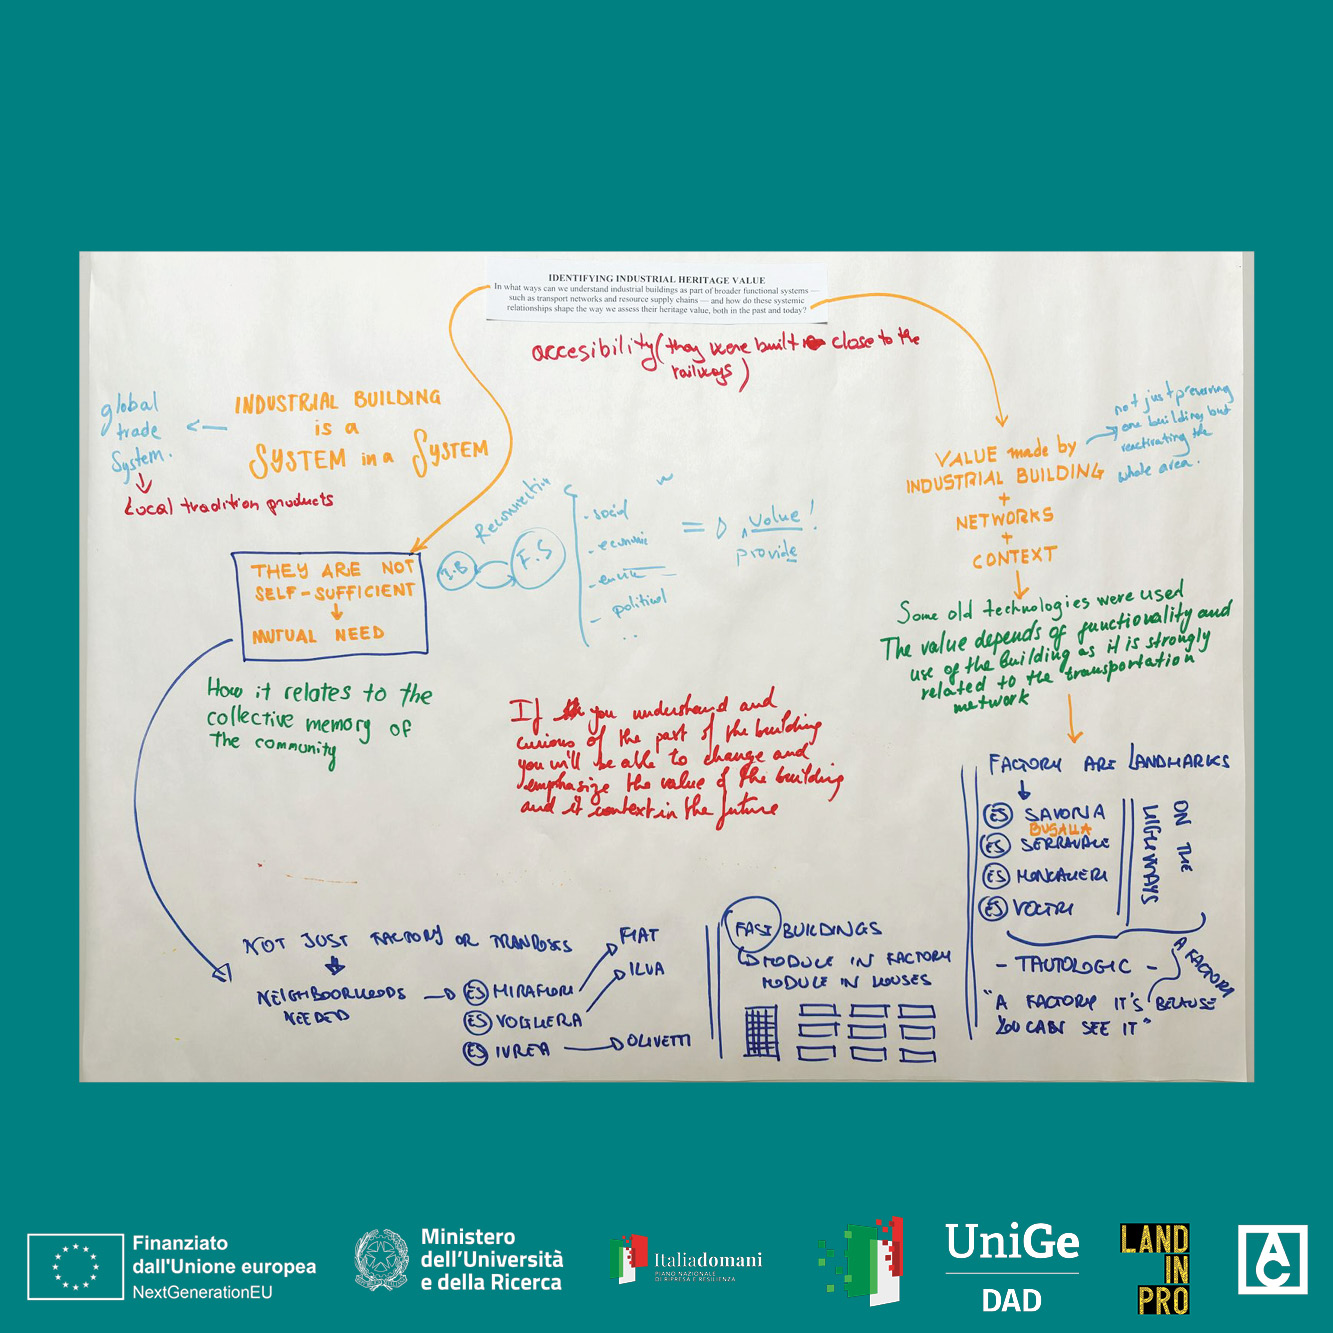 IDENTIFYING INDUSTRIAL HERITAGE VALUE
In what ways can we understand industrial buildings as part of broader functional systems —
such as transport networks and resource supply chains — and how do these systemic
relationships shape the way we assess their heritage value, both in the past and today?
accesibility (they were built close to the
railways)
global
trade
System.
Local tradition products
INDUSTRIAL BUILDING
is a
SYSTEM in a SYSTEM
THEY ARE NOT
SELF-SUFFICIENT
MUTUAL NEED
How it relates to the
collective memory of
the community
I.B
F.S
- social
- economic
- political
..
= value!
provide
If you understand and
curious of the part of the building
you will be able to change and
emphasize the value of the building
and it context in the future
VALUE made by
INDUSTRIAL BUILDING
+
NETWORKS
+
CONTEXT
not just preserving
one building but
reactivating the
whole area.
Some old technologies were used
The value depends of functionality and
use of the building as it is strongly
related to the transportation
network
FACTORY ARE LANDMARKS
ES SAVONA
BUSALLA
ES SERRAVALE
ES MONCALIERI
ES VOLTRI
ON THE
HIGHWAYS
- TAUTOLOGIC -
"A FACTORY IT'S BECAUSE
YOU CAN SEE IT"
A FACTORY
NOT JUST FACTORY OR
NEIGHBOORHOODS
NEEDED
ES MIRAFIORI
ES VOGHERA
ES IVREA
FIAT
ILVA
OLIVETTI
FAST BUILDINGS
MODULE IN FACTORY
MODULE IN HOUSES
Finanziato
dall'Unione europea
NextGenerationEU
Ministero
dell'Università
e della Ricerca
Italiadomani
PIANO NAZIONALE
DI RIPRESA E RESILIENZA
UniGe
DAD
LAND
IN
PRO
AC